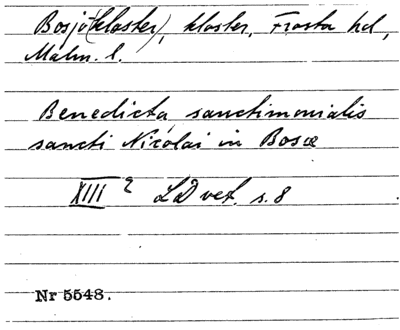 Bosjö(kloster), kloster, Frosta hd,
Malm. l.
Benedicta sanctimonialis
sancti Nicolai in Bosœ
XIII ? LD vet. s. 8
Nr 5548.